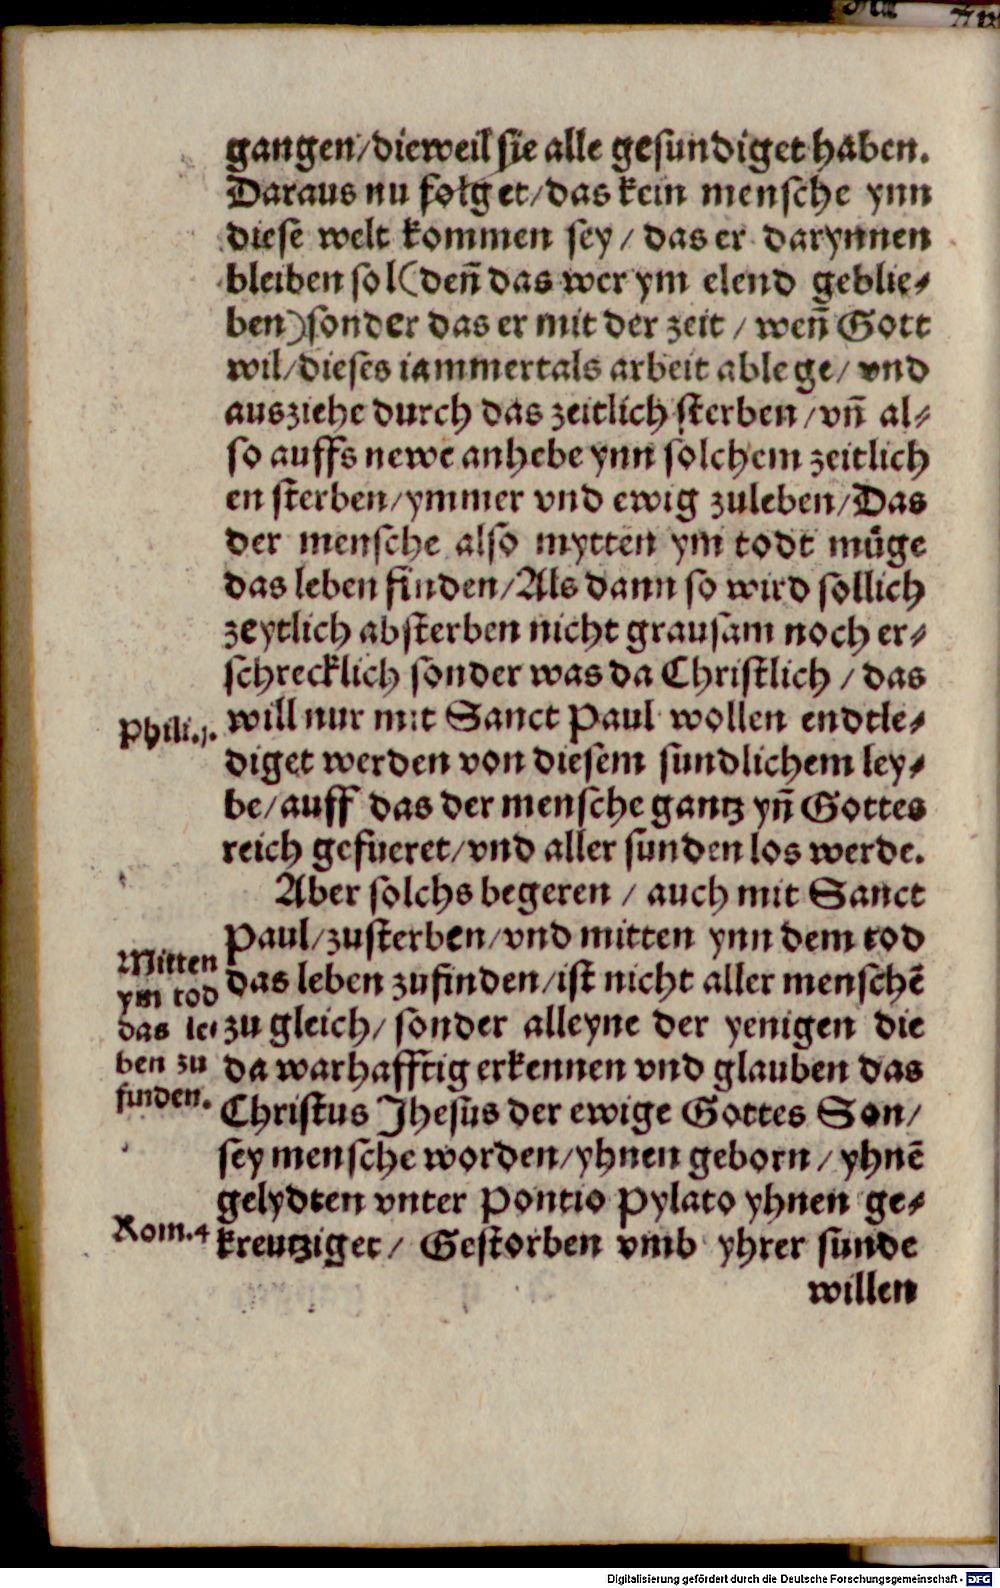 gangen/dieweil sie alle gesundiget haben.
Daraus nu folget/das kein mensche ynn
diese welt kommen sey / das er darynnen
bleiben sol (den̄ das wer ym elend geblie⸗
ben) sonder das er mit der zeit / wen̄ Gott
wil/dieses iammertals arbeit ablege/ vnd
ausziehe durch das zeitlich sterben/vn̄ al⸗
so auffs newe anhebe ynn solchem zeitlich
en sterben/ymmer vnd ewig zuleben/Das
der mensche also mytten ym todt müge
das leben finden/Als dann so wird sollich
zeytlich absterben nicht grausam noch er⸗
schrecklich sonder was da Christlich / das
Phili.j. will nur mit Sanct Paul wollen endtle⸗
diget werden von diesem sundlichem ley⸗
be/auff das der mensche gantz yn̄ Gottes
reich gefueret/vnd aller sunden los werde.
Aber solchs begeren / auch mit Sanct
Paul/zusterben/vnd mitten ynn dem tod
das leben zufinden/ist nicht aller menschē
zu gleich/ sonder alleyne der yenigen die
da warhafftig erkennen vnd glauben das
Christus Jhesus der ewige Gottes Son/
sey mensche worden/yhnen geborn/ yhnē
gelydten vnter Pontio Pylato yhnen ge⸗
kreutziget/ Gestorben vmb yhrer sunde
willen
Mitten
ym tod
das le⸗
ben zu
finden.
Rom.4
Digitalisierung gefördert durch die Deutsche Forschungsgemeinschaft - DFG